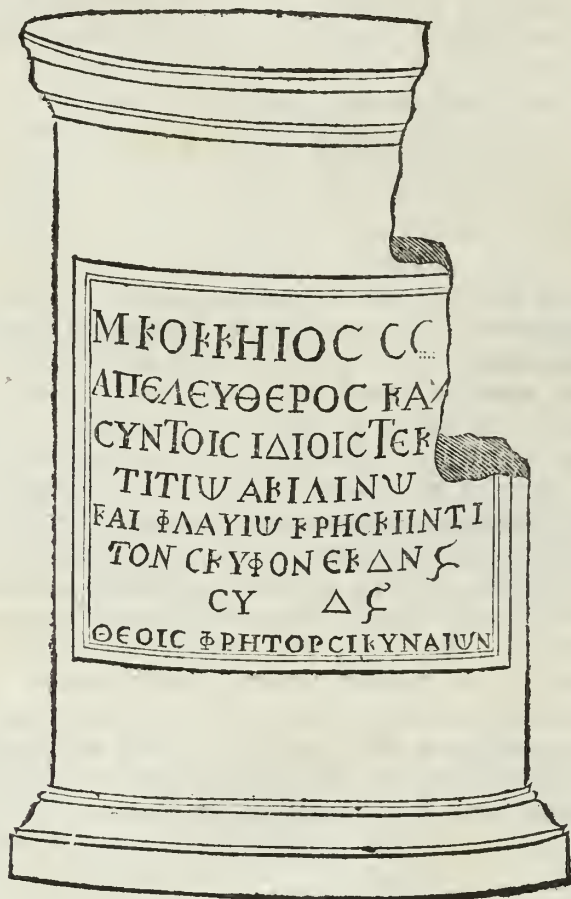 ΜΚΟΚΚΗΙΟϹ
ΑΠΕΛΕΥΘΕΡΟϹ ΚΑ
ϹΥΝΤΟΙϹ ΙΔΙΟΙϹΤΕΚ
ΤΙΤΙѠ ΑΚΙΛΙΝѠ
ΚΑΙ ΦΛΑΥΙѠ ΚΡΗϹΚΗΝΤΙ
ΤΟΝ ϹΚΥΦΟΝ ΕΚ ΔΝ Ϛ
ϹΥ Δ Ϛ
ΘΕΟΙϹ ΦΡΗΤΟΡϹΙΚΥΝΑΙѠΝ